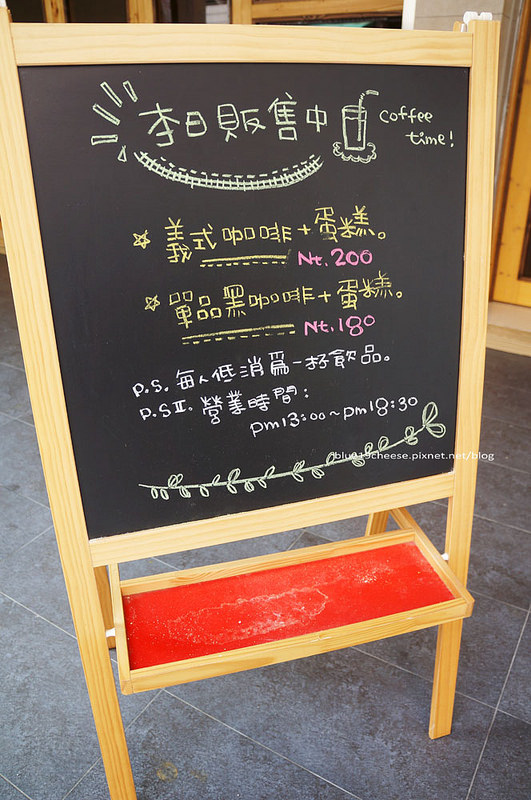 李日販售中 coffee
time!
☆ 義式咖啡+蛋糕。
Nt.200
☆ 單品黑咖啡+蛋糕。
Nt.180
p.s. 每人低消為一杯飲品。
p.s II. 營業時間:
pm13:00~pm18:30
blu019cheese.pixnet.net/blog